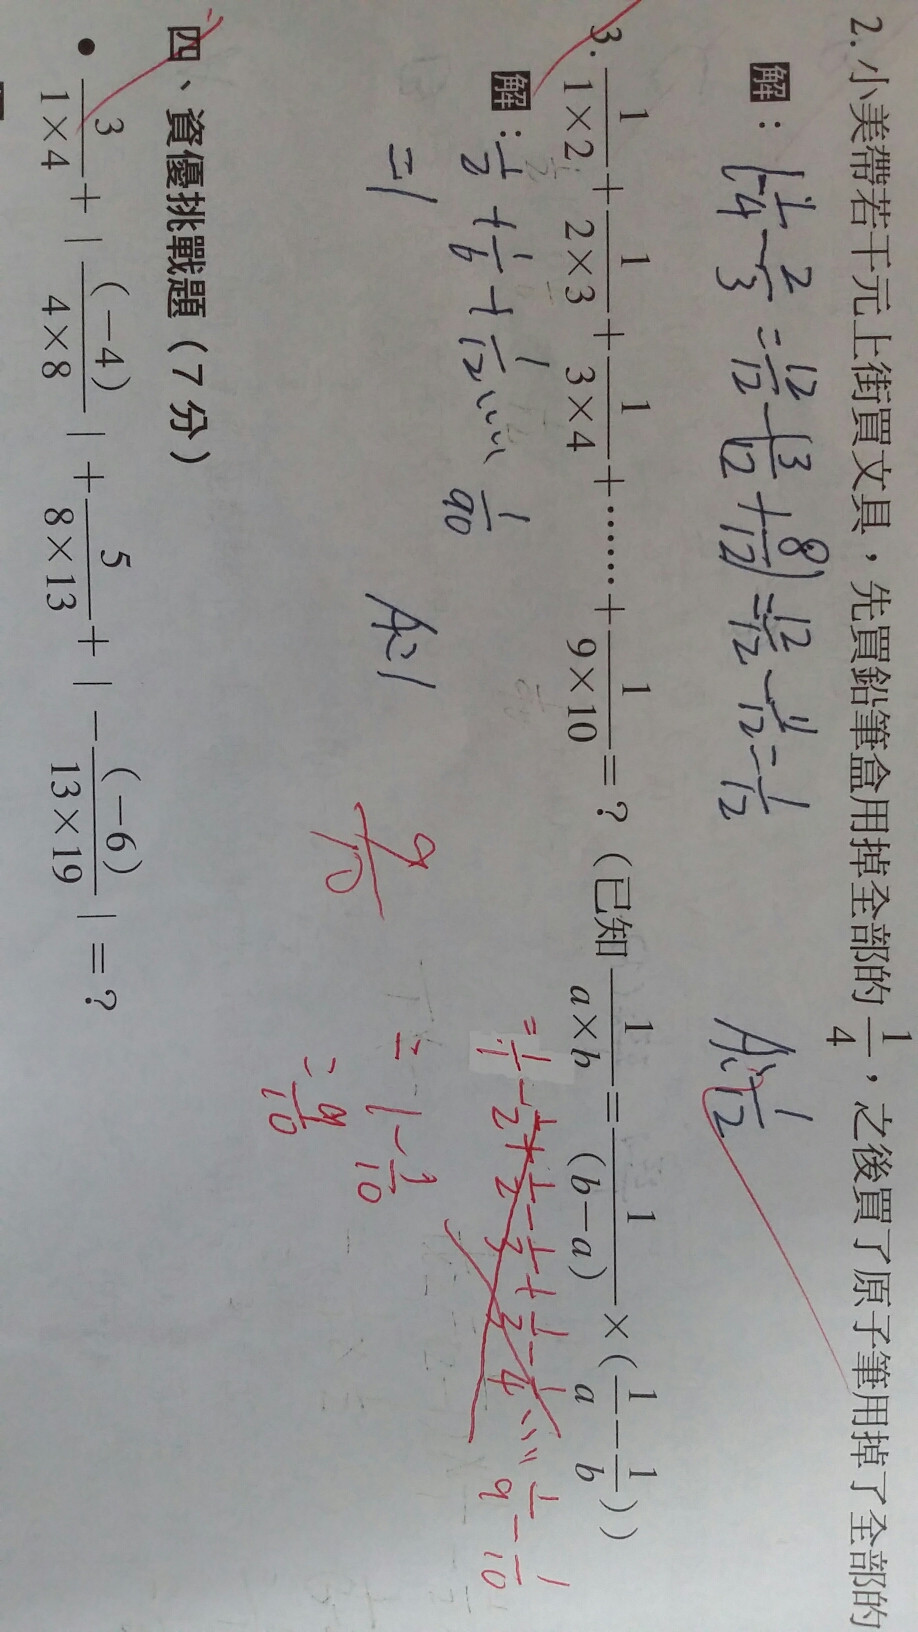 2. 小美帶若干元上街買文具，先買鉛筆盒用掉全部的 1/4，之後買了原子筆用掉了全部的
解：1-1/4-2/3=12/12-(3/12+8/12)=12/12-11/12=1/12
A：1/12
3. 1/(1×2)+1/(2×3)+1/(3×4)+……+1/(9×10)=？（已知 1/(a×b)=1/(b-a)×(1/a-1/b)）
解：1/2+1/6+1/12……1/90
=1/1-1/2+1/2-1/3+1/3-1/4……1/9-1/10
=1
=1-1/10
A：1
9/10
=9/10
四、資優挑戰題（7 分）
• 3/(1×4)+|(-4)/(4×8)|+5/(8×13)+|-(-6)/(13×19)|=？